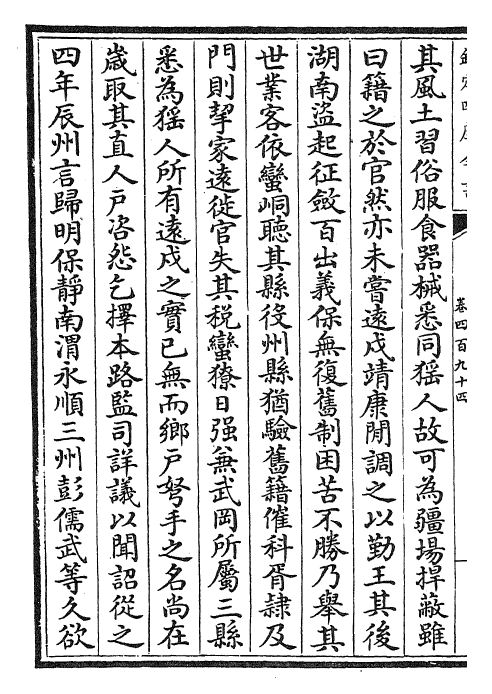 欽定四庫全書
卷四百九十四
其風土習俗服食器械悉同猺人故可為疆場捍蔽雖
曰籍之於官然亦未嘗遠戍靖康閒調之以勤王其後
湖南盜起征斂百出義保無復舊制困苦不勝乃舉其
世業客依蠻峒聽其縣役州縣猶驗舊籍催科胥隷及
門則挈家遠徙官失其稅蠻獠日强兼武岡所屬三縣
悉為猺人所有遠戍之實已無而鄉戶弩手之名尚在
歲取其直人戶咨怨乞擇本路監司詳議以聞詔從之
四年辰州言歸明保靜南渭永順三州彭儒武等久欲